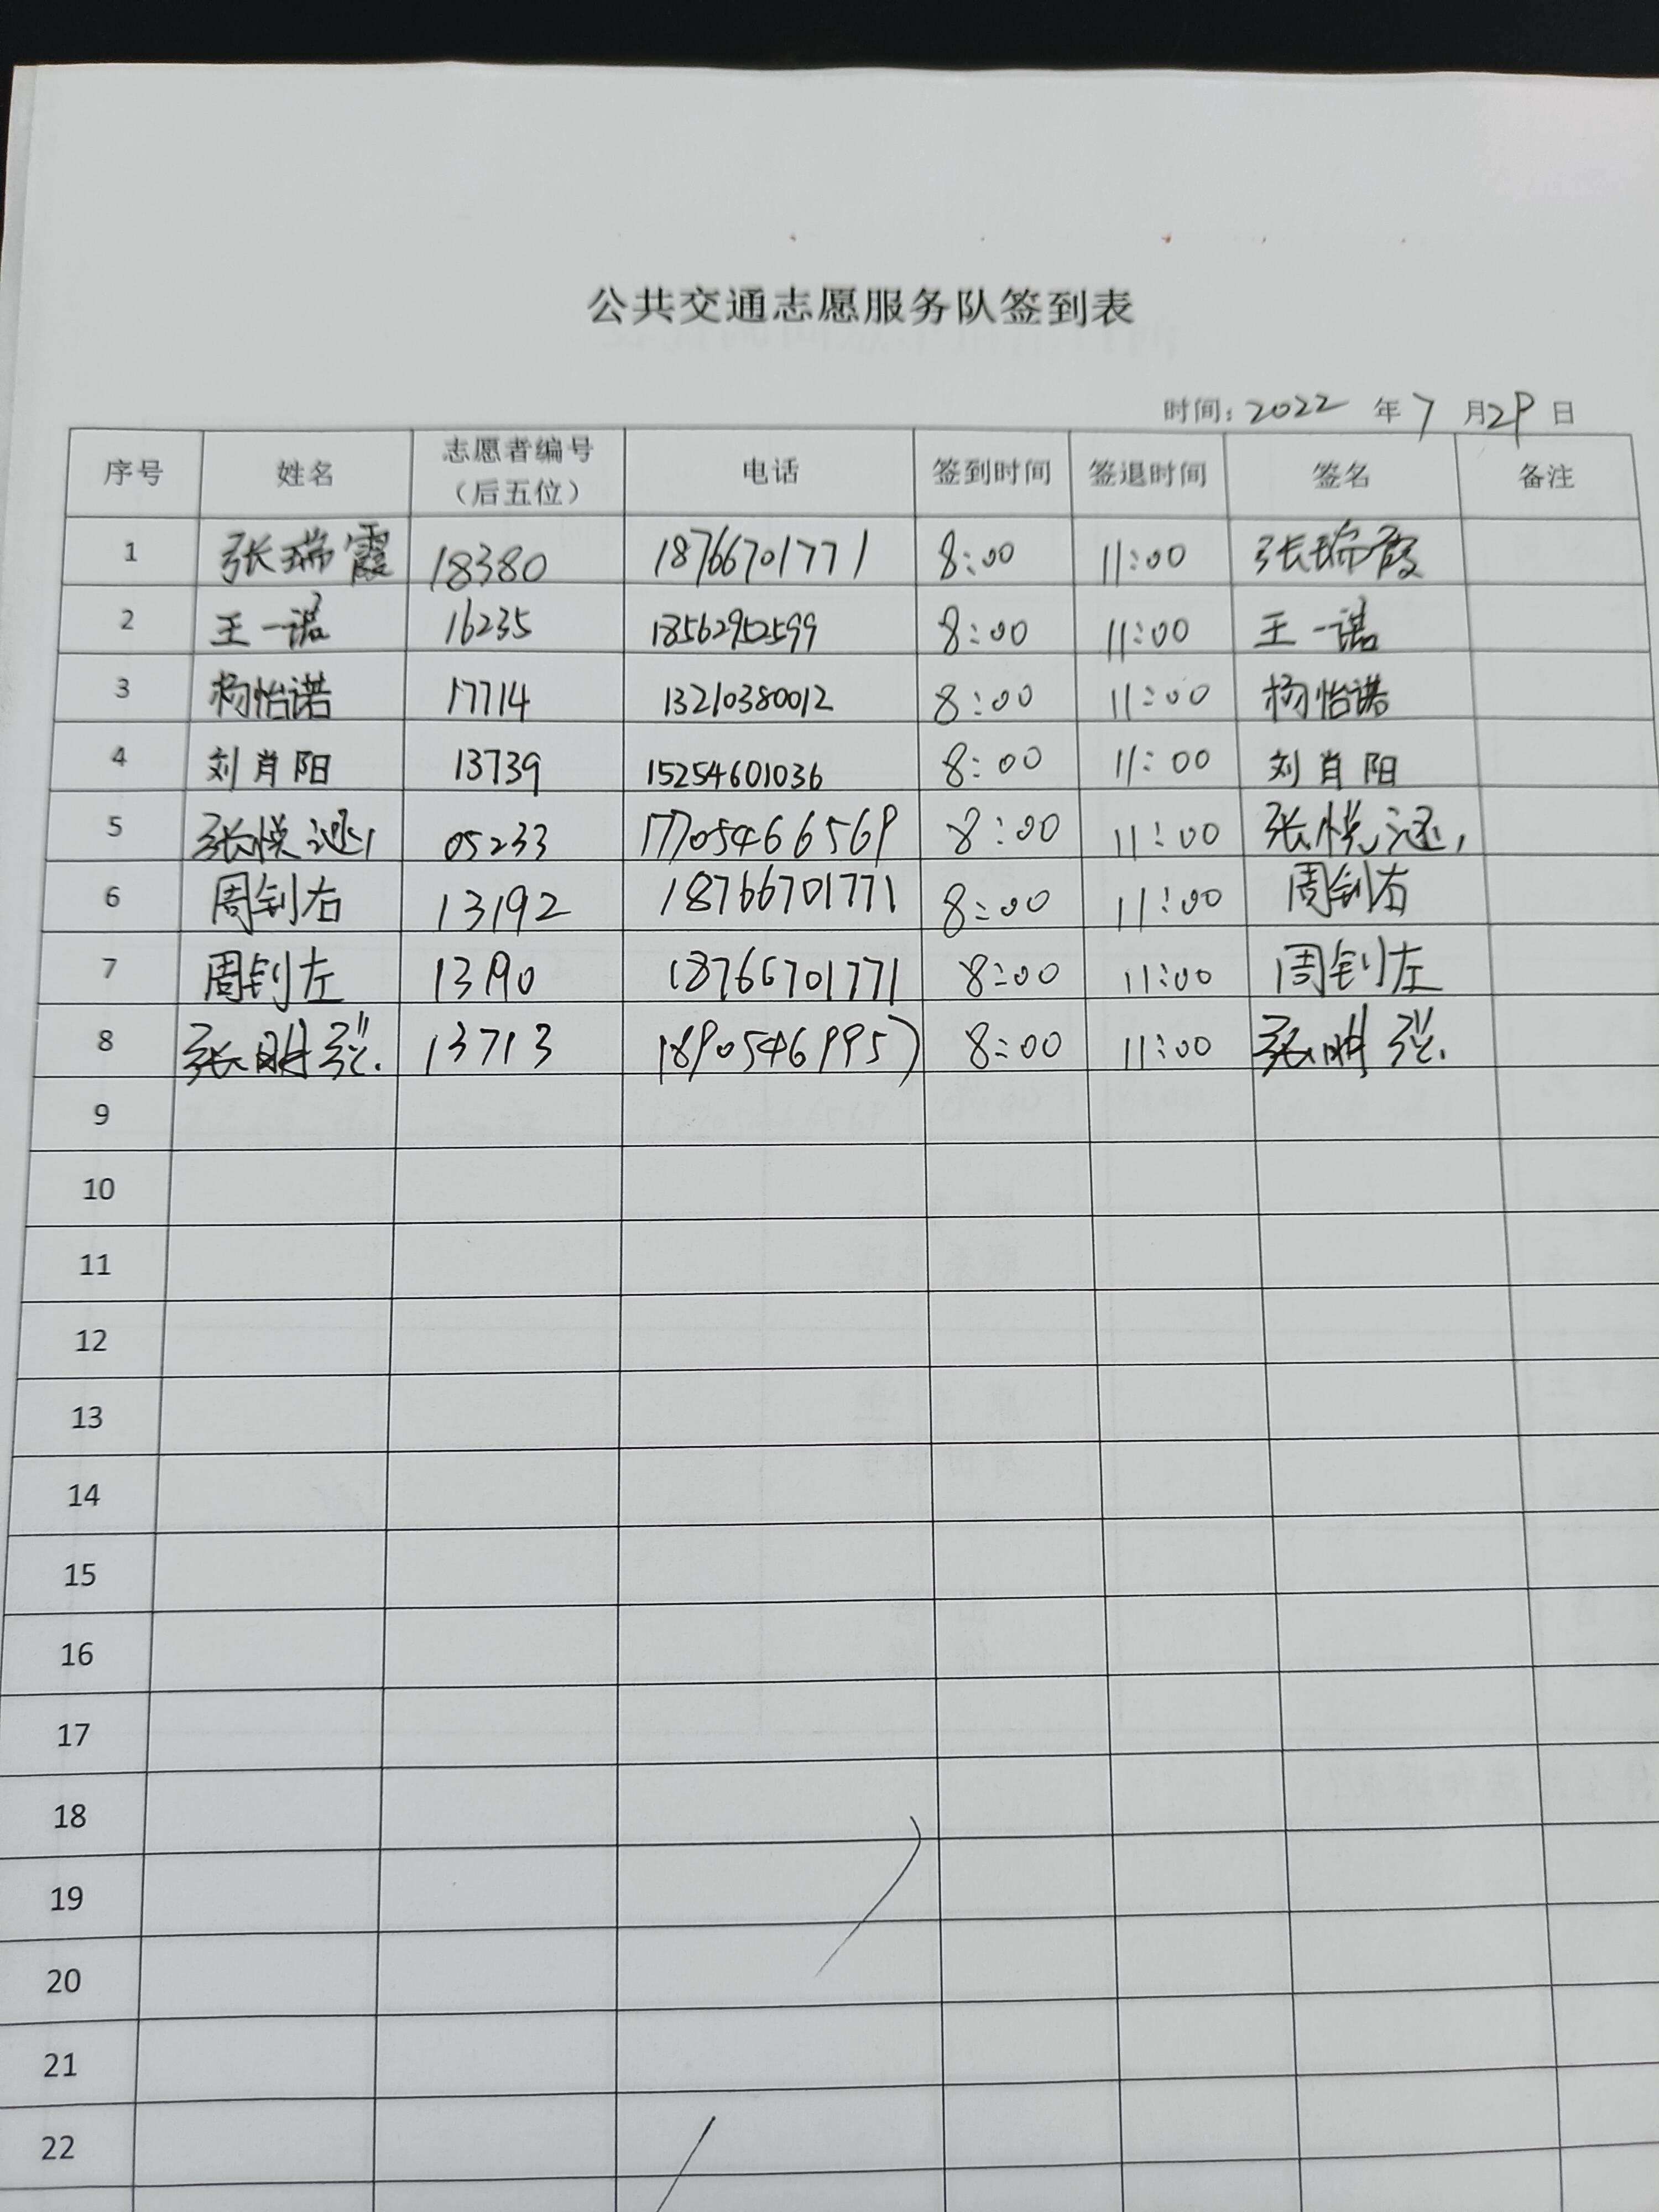 公共交通志愿服务队签到表
时间: 2022 年 7 月 29 日
序号 姓名 志愿者编号（后五位） 电话 签到时间 签退时间 签名 备注
1 张瑞霞 18380 18766701771 8:00 11:00 张瑞霞
2 王一诺 16235 18562952599 8:00 11:00 王一诺
3 杨怡诺 17714 13210380012 8:00 11:00 杨怡诺
4 刘肖阳 13739 15254601036 8:00 11:00 刘肖阳
5 张悦 05233 17705466569 8:00 11:00 张悦
6 周钊右 13192 18766701771 8:00 11:00 周钊右
7 周钊左 13190 18766701771 8:00 11:00 周钊左
8 张明 13713 18905469957 8:00 11:00 张明
9
10
11
12
13
14
15
16
17
18
19
20
21
22